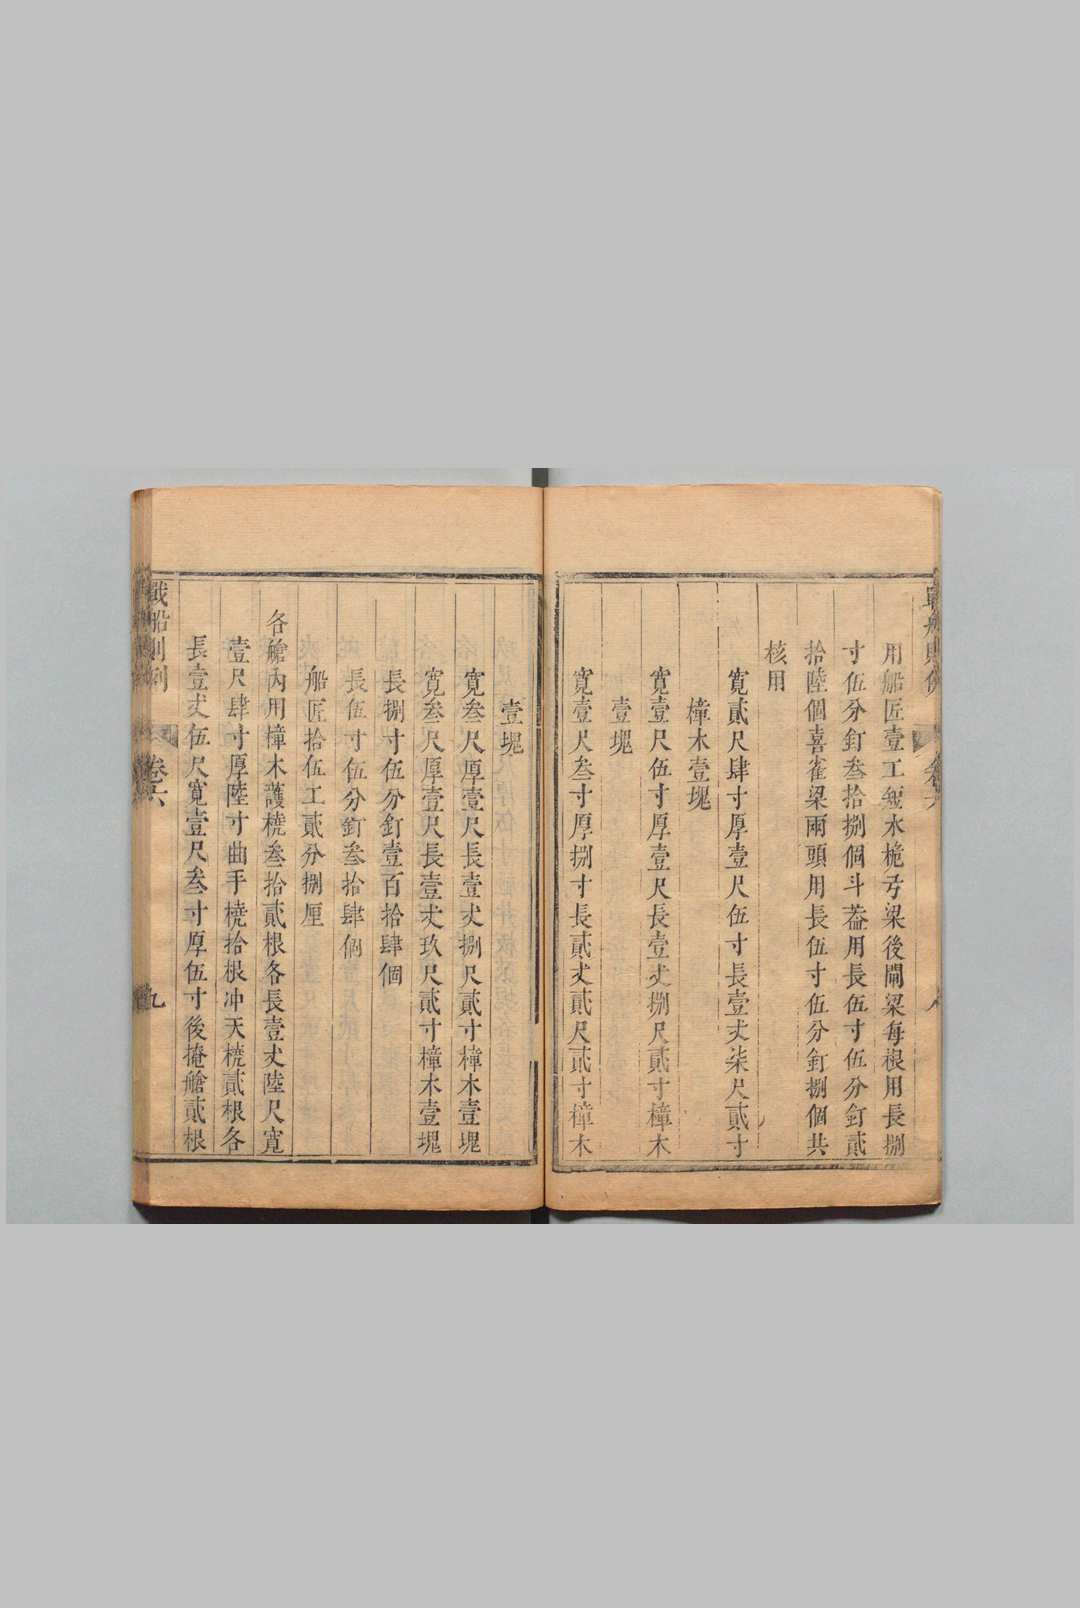 用船匠壹工緩水桅弓梁後閘梁每根用長捌
寸伍分釘叁拾捌個斗葢用長伍寸伍分釘貳
拾陸個喜雀梁兩頭用長伍寸伍分釘捌個共
核用
寬貳尺肆寸厚壹尺伍寸長壹丈柒尺貳寸
樟木壹塊
寬壹尺伍寸厚壹尺長壹丈捌尺貳寸樟木
壹塊
寬壹尺叁寸厚捌寸長貳丈貳尺貳寸樟木
壹塊
寬叁尺厚壹尺長壹丈捌尺貳寸樟木壹塊
寬叁尺厚壹尺長壹丈玖尺貳寸樟木壹塊
長捌寸伍分釘壹百拾肆個
長伍寸伍分釘叁拾肆個
船匠拾伍工貳分捌厘
各艙內用樟木護橈叁拾貳根各長壹丈陸尺寬
壹尺肆寸厚陸寸曲手橈拾根冲天橈貳根各
長壹丈伍尺寬壹尺叁寸厚伍寸後掩艙貳根
戰船則例
卷六
九